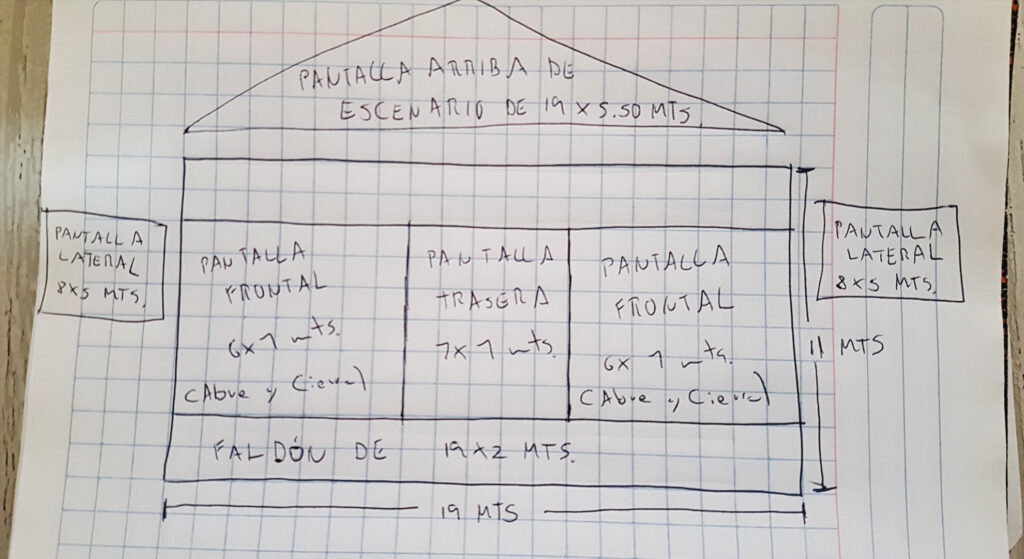 PANTALLA ARRIBA DE
ESCENARIO DE 19 X 5.50 MTS
PANTALLA
LATERAL
8X5 MTS.
PANTALLA
FRONTAL
6x7 mts.
(Abre y Cierra)
PANTALLA
TRASERA
7x7 mts.
PANTALLA
FRONTAL
6x7 mts.
(Abre y Cierra)
PANTALLA
LATERAL
8X5 MTS.
11 MTS
FALDÓN DE 19X2 MTS.
19 MTS